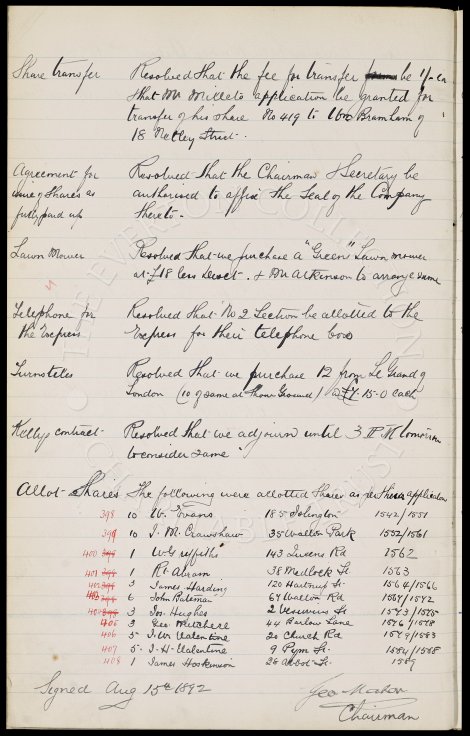 Share transfer Resolved that the fee for transfer be 1/- ea
that Mr Millets application be granted for
transfer of his share No 419 to Mr Bramham of
18 Netley Street.
Agreement for Resolved that the Chairman & Secretary be
issue of Shares as authorised to affix the Seal of the Company
fully paid up thereto.
Lawn Mower Resolved that we purchase a "Greens" Lawn mower
at £18 less Disct. & Mr Atkinson to arrange same
Telephone for Resolved that No 2 Section be allotted to the
the Express Express for their telephone box
Turnstiles Resolved that we purchase 12 from Le Grand of
London (10 of same at Show Ground) @ £7-15-0 each
Kellys contract Resolved that we adjourn until 3 PM tomorrow
to consider same
Allot Shares The following were allotted Shares as per their application
398 10 W. Evans 185 Islington 1542/1551
399 10 J. M. Crawshaw 35 Walton Park 1552/1561
400 1 W Griffiths 143 Queens Rd 1562
401 1 Rt Abram 38 Medlock St 1563
402 3 James Harding 120 Hartnup St 1564/1566
403 6 John Bateman 69 Walton Rd 1567/1572
404 3 Jos. Hughes 2 Vesuvius St 1573/1575
405 3 Geo. 44 Barlow Lane 1576/1578
406 5 J. W. Valentine 20 Church Rd 1579/1583
407 5 J. H. Valentine 9 Pym St. 1584/1588
408 1 James Hookinson 26 Abbot St. 1589
Signed Aug 15th 1892 Geo Mahon
Chairman